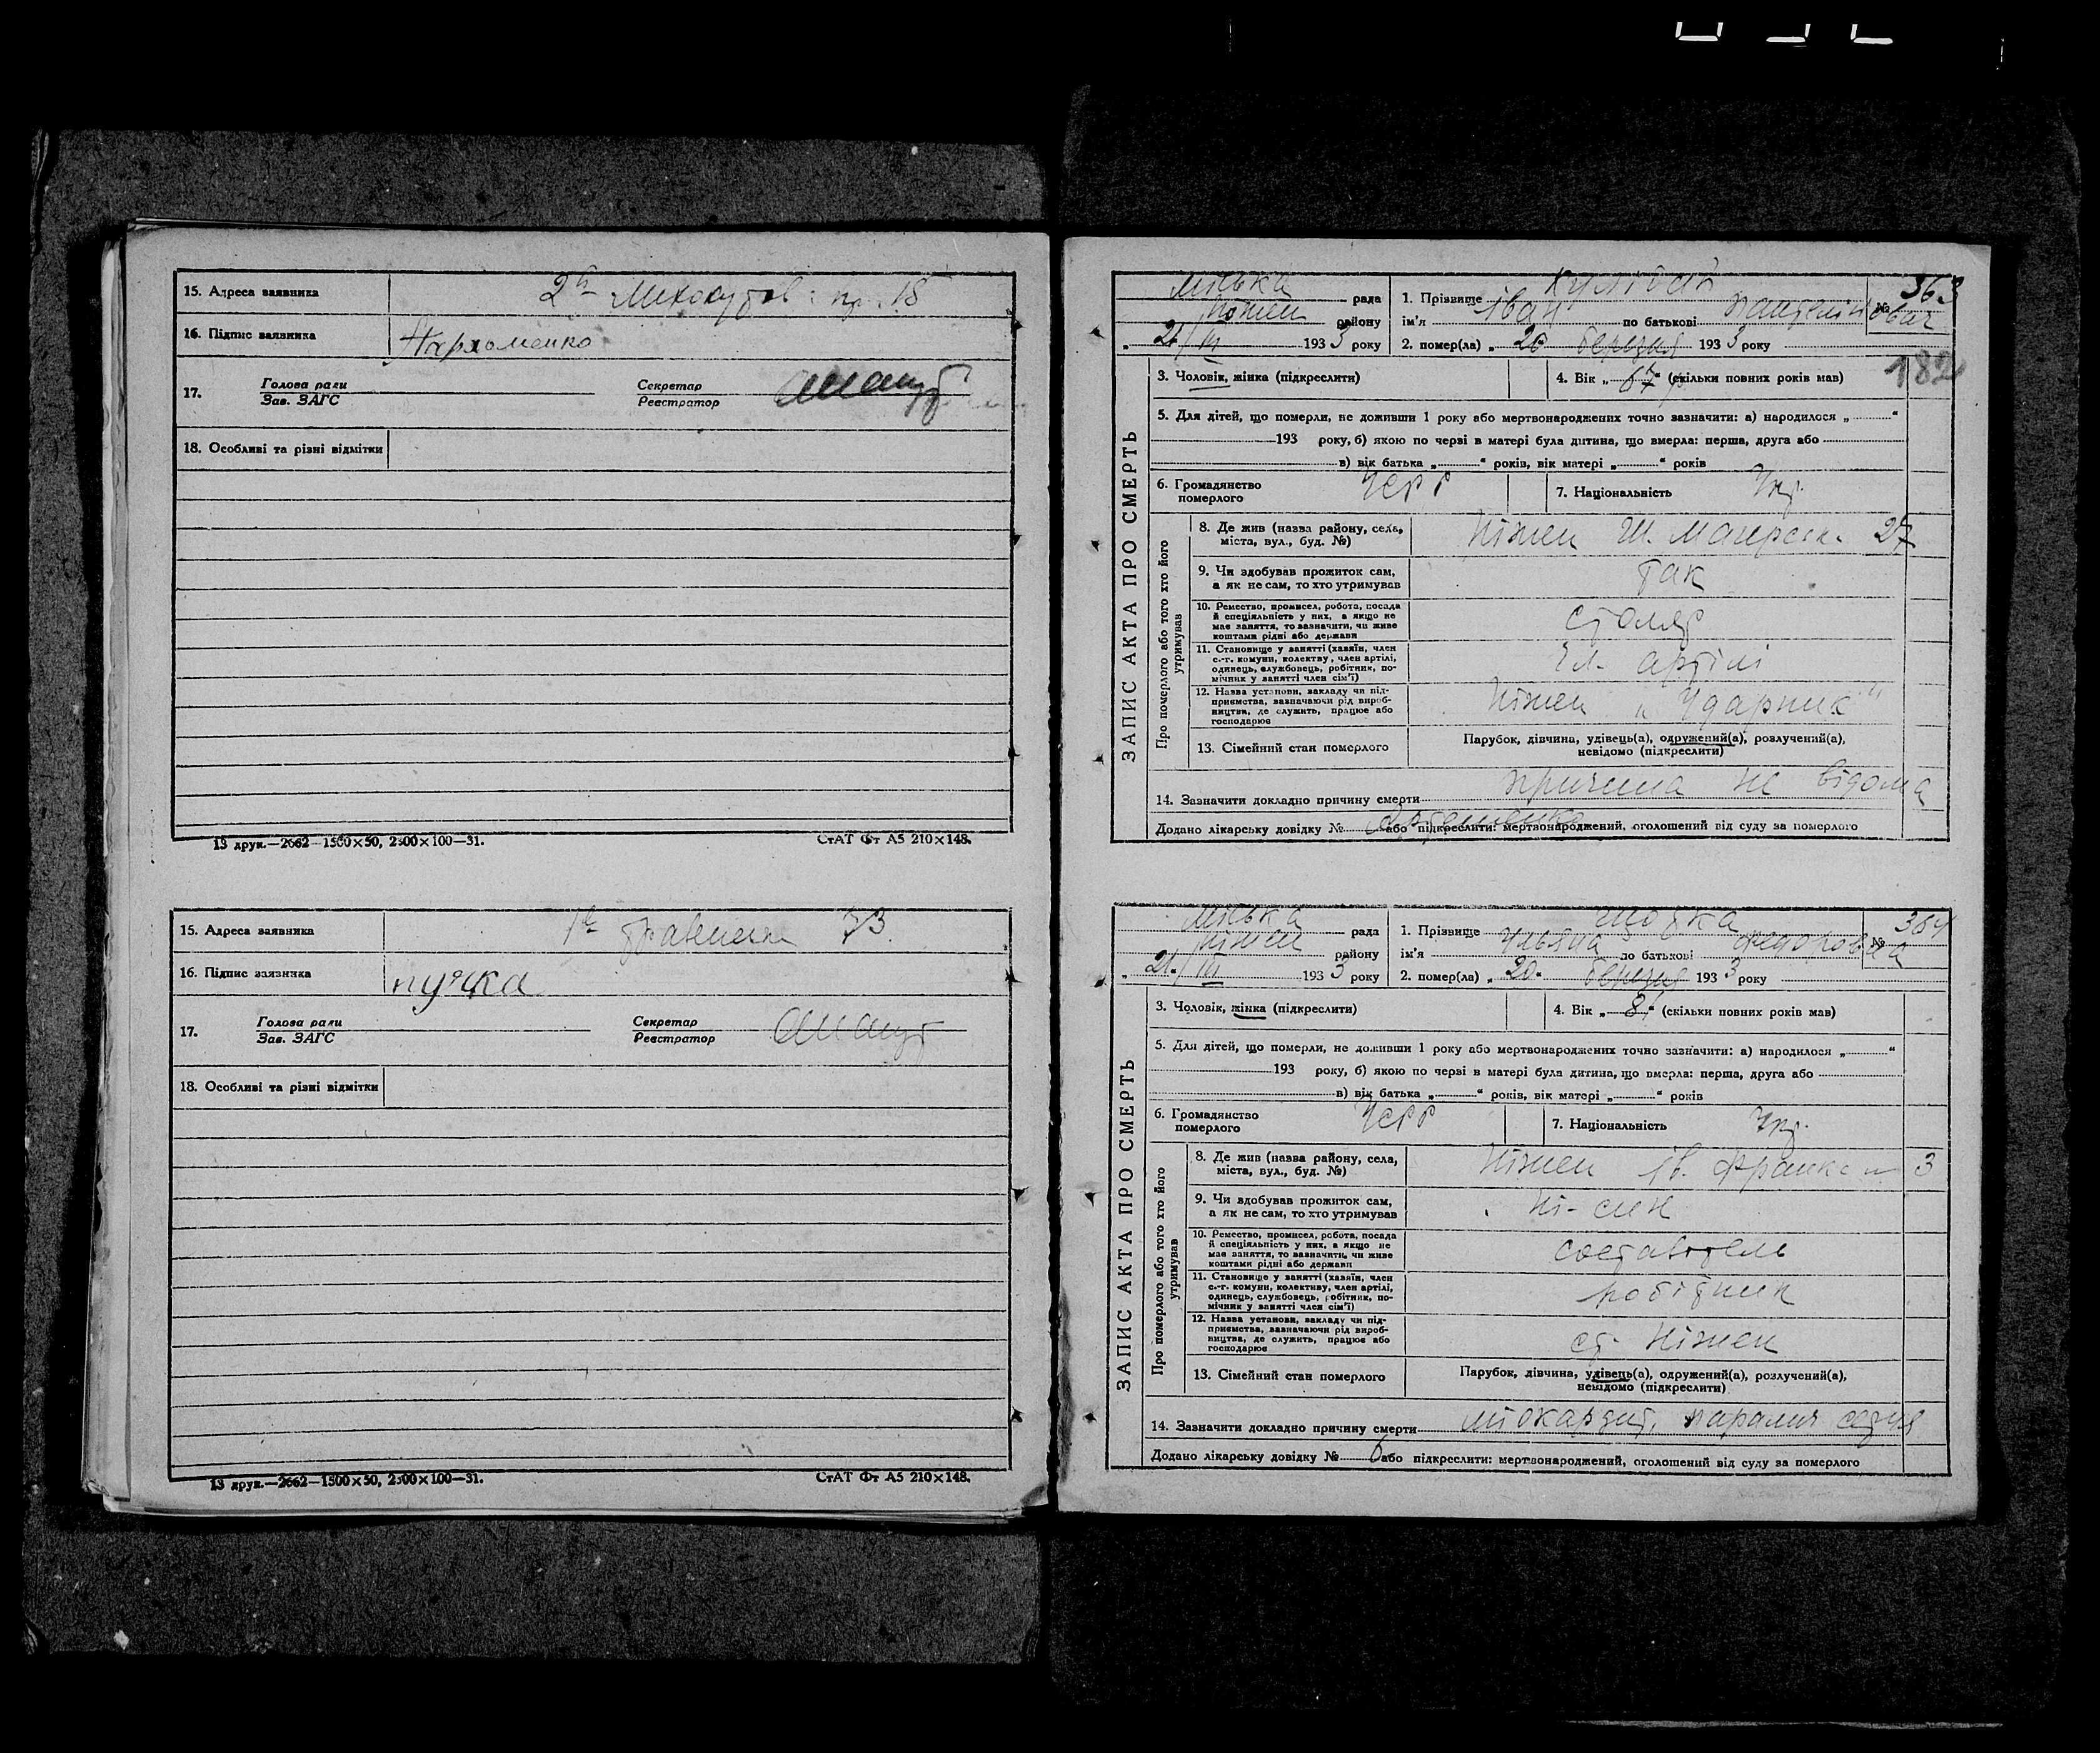 15. Адреса заявника 2а пр. 18
16. Підпис заявника Пархоменко
17. Голова ради Секретар
Зав. ЗАГС Реєстратор
18. Особливі та різні відмітки
13 друк.—2662—1500×50, 2300×100—31. СтАТ Фт А5 210×148.
15. Адреса заявника 73
16. Підпис заявника пучка
17. Голова ради Секретар
Зав. ЗАГС Реєстратор
18. Особливі та різні відмітки
13 друк.—2662—1500×50, 2300×100—31. СтАТ Фт А5 210×148.
ЗАПИС АКТА ПРО СМЕРТЬ
міська рада
Ніжен району
„ 21/III 1933 року
1. Прізвище
№ 363
ім'я Іван по батькові
2. помер(ла) „ 20 березня 1933 року
182
3. Чоловік, жінка (підкреслити) 4. Вік „ 67 “ (скільки повних років мав)
5. Для дітей, що померли, не доживши 1 року або мертвонароджених точно зазначити: а) народилося „ “
193 року, б) якою по черві в матері була дитина, що вмерла: перша, друга або
в) вік батька „ “ років, вік матері „ “ років
6. Громадянство померлого УСРР 7. Національність Укр.
Про померлого або того хто його утримував
8. Де жив (назва району, села, Ніжен Ш. 27
міста, вул., буд. №)
9. Чи здобував прожиток сам, так
а як не сам, то хто утримував
10. Ремество, промисел, робота, посада столяр
й спеціяльність у них, а якщо не
має заняття, то зазначити, чи живе
коштами рідні або держави
11. Становище у занятті (хазяїн, член чл. артілі
с.-г. комуни, колективу, член артілі,
одинець, службовець, робітник, по-
мічник у занятті член сім'ї)
12. Назва установи, закладу чи під- Ніжен „Ударник“
приємства, зазначаючи рід вироб-
ництва, де служить, працює або
господарює
13. Сімейний стан померлого Парубок, дівчина, удівець(а), одружений(а), розлучений(а),
невідомо (підкреслити)
14. Зазначити докладно причину смерти причина не відома
Додано лікарську довідку № або підкреслити: мертвонароджений, оголошений від суду за померлого
ЗАПИС АКТА ПРО СМЕРТЬ
міська рада
Ніжен району
„ 21/III 1933 року
1. Прізвище
№ 364
ім'я Ульяна по батькові Федоровна
2. помер(ла) „ 20 березня 1933 року
3. Чоловік, жінка (підкреслити) 4. Вік „ 81 “ (скільки повних років мав)
5. Для дітей, що померли, не доживши 1 року або мертвонароджених точно зазначити: а) народилося „ “
193 року, б) якою по черві в матері була дитина, що вмерла: перша, друга або
в) вік батька „ “ років, вік матері „ “ років
6. Громадянство померлого УСРР 7. Національність Укр.
Про померлого або того хто його утримував
8. Де жив (назва району, села, Ніжен Ів. Франка 3
міста, вул., буд. №)
9. Чи здобував прожиток сам, Ні - син
а як не сам, то хто утримував
10. Ремество, промисел, робота, посада составтель
й спеціяльність у них, а якщо не
має заняття, то зазначити, чи живе
коштами рідні або держави
11. Становище у занятті (хазяїн, член робітник
с.-г. комуни, колективу, член артілі,
одинець, службовець, робітник, по-
мічник у занятті член сім'ї)
12. Назва установи, закладу чи під- ст. Ніжен
приємства, зазначаючи рід вироб-
ництва, де служить, працює або
господарює
13. Сімейний стан померлого Парубок, дівчина, удівець(а), одружений(а), розлучений(а),
невідомо (підкреслити)
14. Зазначити докладно причину смерти міокардит, параліч серця
Додано лікарську довідку № або підкреслити: мертвонароджений, оголошений від суду за померлого